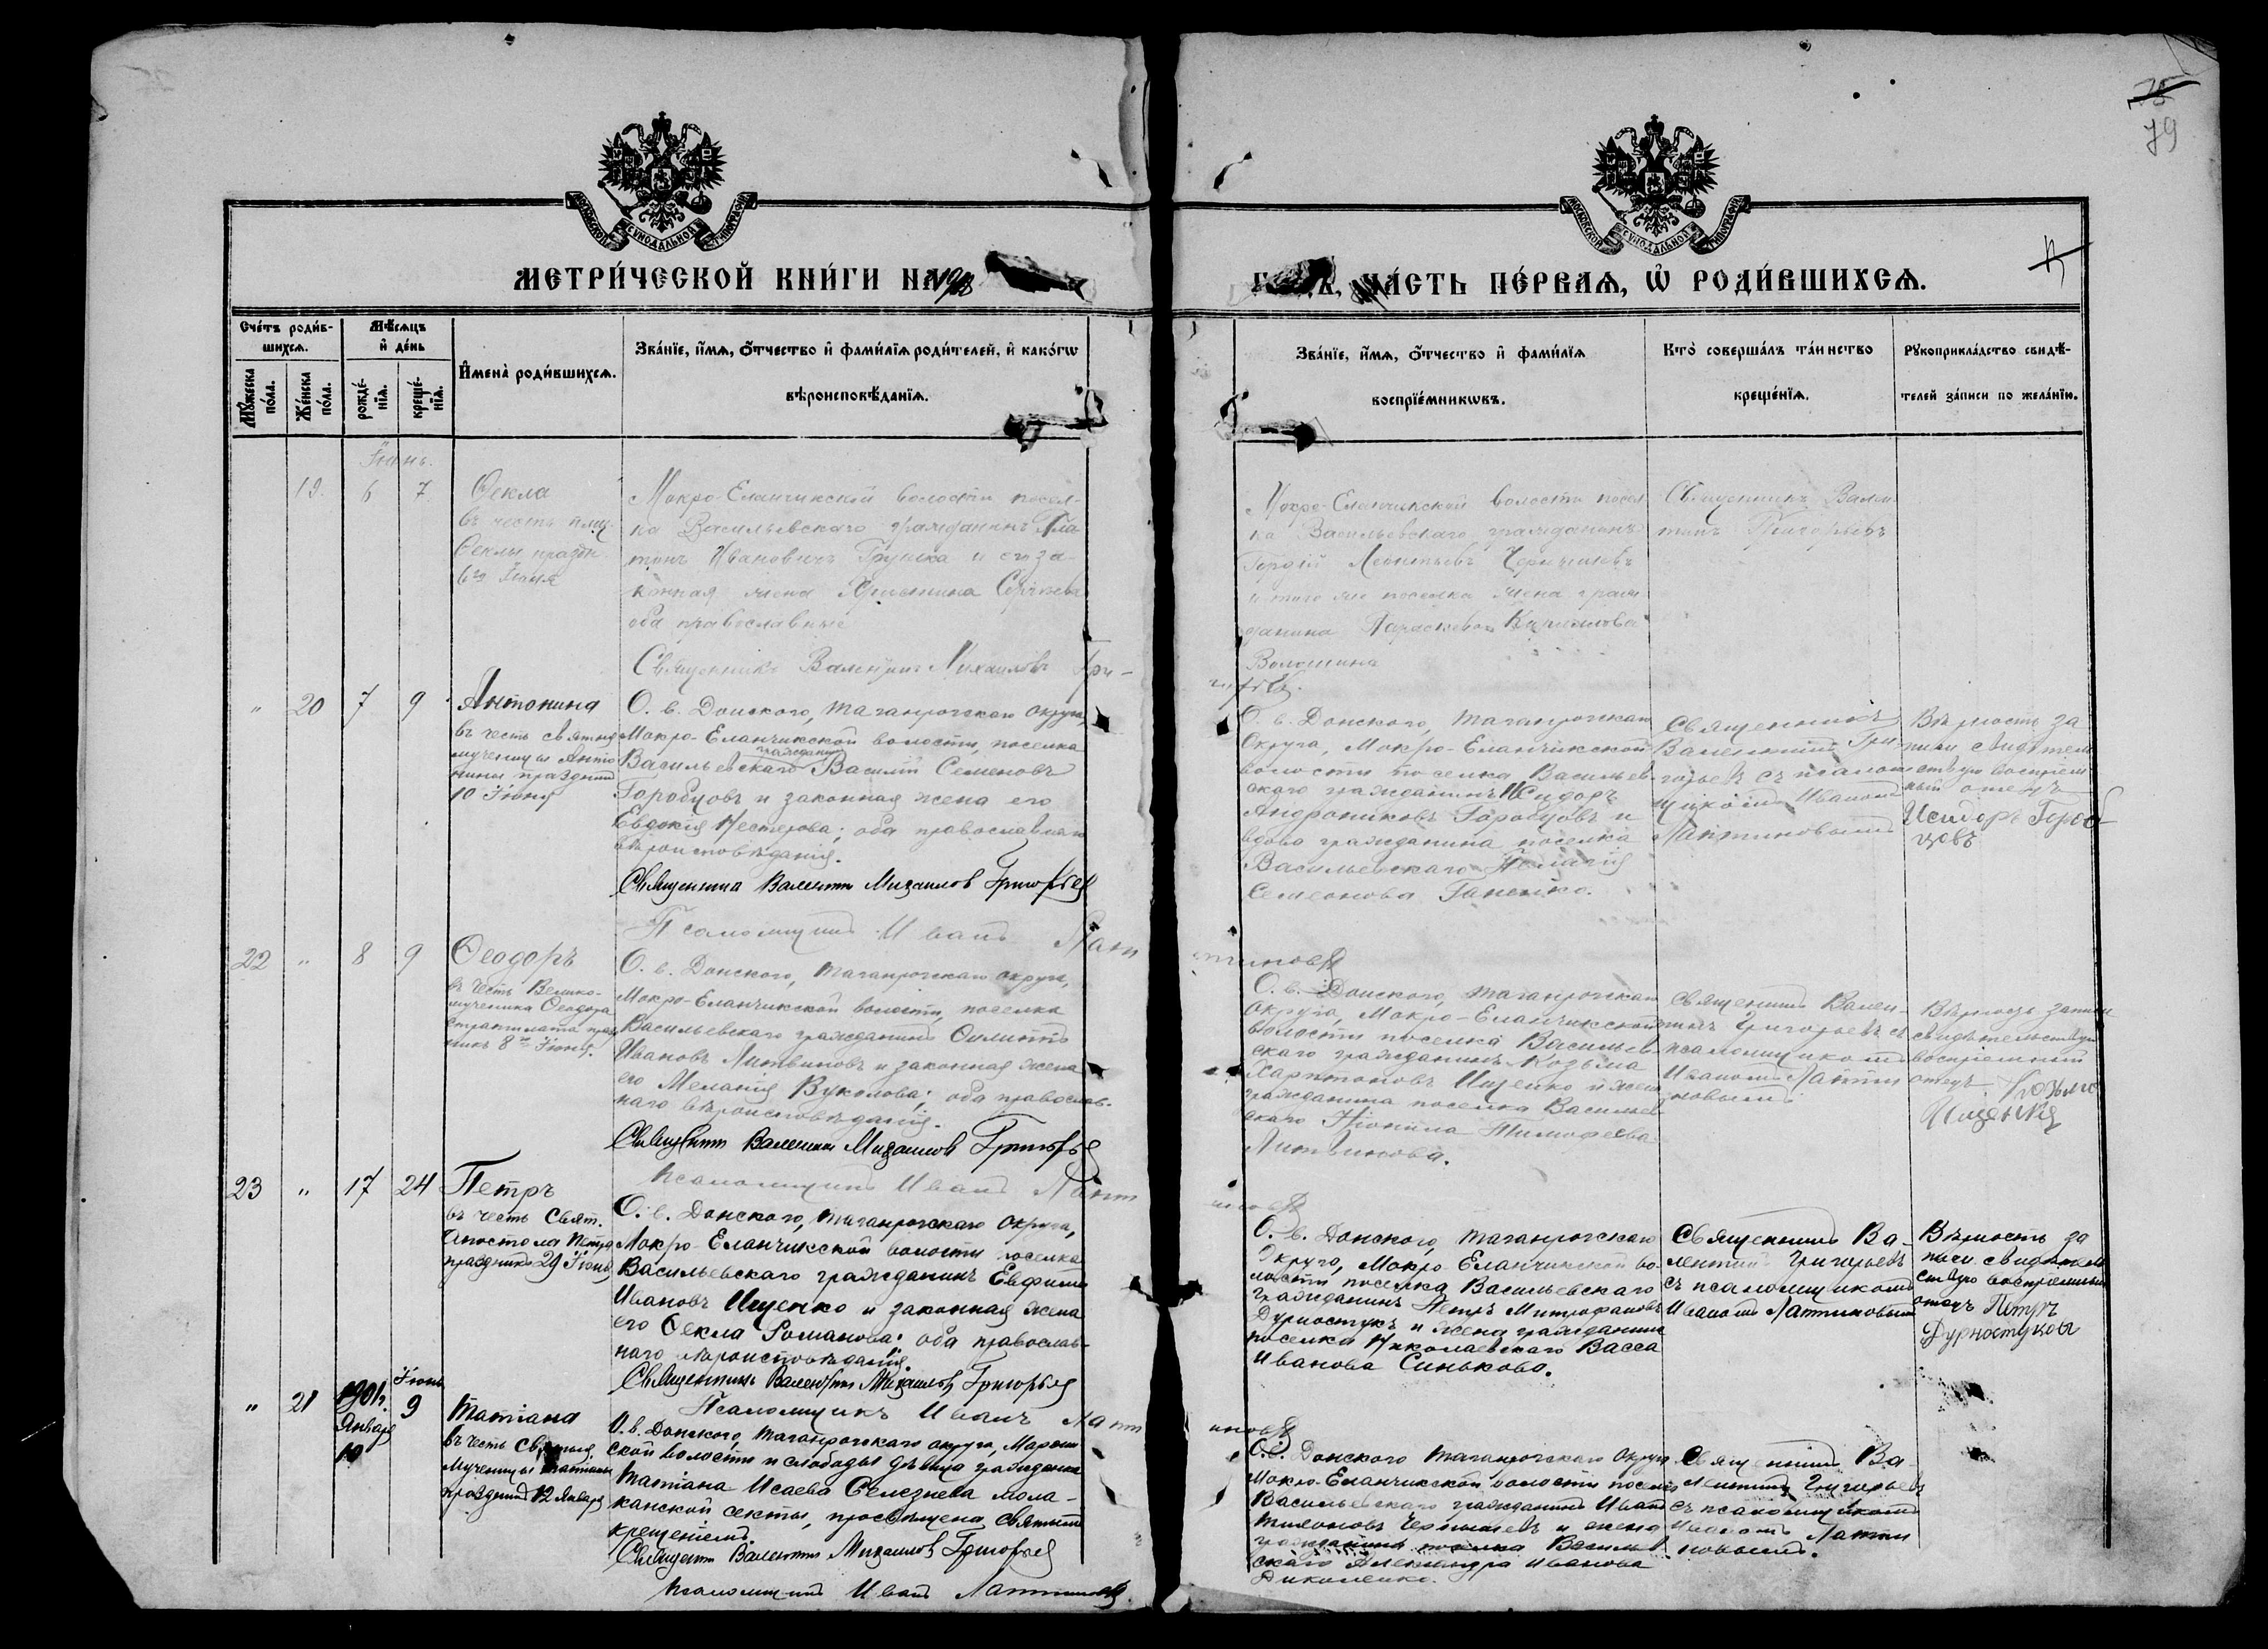 75
79
МОСКОВСКОЙ СУНОДАЛЬНОЙ ТИПОГРАФІИ
МОСКОВСКОЙ СУНОДАЛЬНОЙ ТИПОГРАФІИ
МЕТРИ́ЧЕСКОЙ КНИ́ГИ НА 1918
ЧА́СТЬ ПЕ́РВАѦ, Ѽ РОДИ́ВШИХСѦ.
Сче́тъ роди́в-
шихсѧ.
Мꙋ́жеска
по́ла.
Же́нска
по́ла.
Мѣ́сѧцъ
и҆ де́нь
рожде́-
нїѧ.
креще́-
нїѧ.
И҆мена̀ роди́вшихсѧ.
Зва́нїе, и҆́мѧ, ѻ҆́тчество и҆ фами́лїѧ роди́телей, и҆ како́гѡ
вѣроисповѣ́данїѧ.
Зва́нїе, и҆́мѧ, ѻ҆́тчество и҆ фами́лїѧ
воспрїе́мникѡвъ.
Кто̀ соверша́лъ та́инство
креще́нїѧ.
Рꙋкоприкла́дство свидѣ́-
телей за́писи по жела́нїю.
Іюнь.
19. 6 7.
Ѳекла
въ честь
Ѳеклы праздн.
6го Іюня
Мокро-Еланчикской волости посел-
ка Васильевскаго гражданинъ Пла-
тонъ Ивановичъ Грушка и его за-
конная жена Сергіева
оба православные
Священникъ Валентинъ Михаиловъ Гри-
Мокро-Еланчикской волости посел-
ка Васильевскаго гражданинъ
Гордій Леонтьевъ
и того же поселка жена граж-
данина Параскева Кириллова
Волошина
Священникъ Вален-
тинъ Григорьевъ
" 20 7 9
Антонина
въ честь святыя
мученицы Анто
нины праздник
10 Іюня
О. в. Донского, Таганрогскаго округа,
Мокро-Еланчикской волости, поселка
гражданинъ
Васильевскаго Василій Семеновъ
Горобцовъ и законная жена его
Евдокія Нестерова; оба православнаго
вѣроисповѣданія.
Священник Валентин Михаилов Григорьев
Псаломщикъ Иванъ Лапт
иновъ
О. в. Донского, Таганрогскаго
Округа, Мокро-Еланчикской
волости поселка Васильев-
скаго гражданинъ Исидоръ
Андрониковъ Горобцовъ и
вдова гражданина поселка
Васильевскаго Пелагія
Семеонова Ганенко.
Священникъ
Валентинъ Гри-
горьевъ съ псалом
щикомъ Иваномъ
Лаптиновымъ
Вѣрность за
писи свидѣтель
ствую воспріем
ный отецъ
Исидоръ Гороб
цовъ
22 " 8 9
Ѳеодоръ
въ честь Велико-
мученика Ѳеодора
Стратилата празд
никъ 8го Іюня.
О. в. Донского, Таганрогскаго округа,
Мокро-Еланчикской волости, поселка
Васильевскаго гражданинъ Филиппъ
Ивановъ Литвиновъ и законная жена
его Меланія Вуколова; оба православ-
наго вѣроисповѣданія.
Священник Валентин Михаилов Григорьев
Псаломщикъ Иванъ Лапт
иновъ
О. в. Донского, Таганрогскаго
Округа, Мокро-Еланчикской
волости поселка Васильев-
скаго гражданинъ Козьма
Харитоновъ Ищенко и жена
гражданина поселка Васильев
скаго Неонила Тимофеева
Литвинова.
Священникъ Вален-
тинъ Григорьевъ съ
псаломщикомъ
Иваномъ Лапти
новымъ.
Вѣрность записи
свидѣтельствую
воспріемный
отецъ Козьма
Ищенко
23 " 17 24
Петръ
въ честь Свят.
Апостола Петра
праздникъ 29 Іюня
О. в. Донского, Таганрогскаго округа,
Мокро-Еланчикской волости поселка
Васильевскаго гражданинъ Евфимъ
Ивановъ Ищенко и законная жена
его Ѳекла Романова; оба православ-
наго вѣроисповѣданія.
Священникъ Валентин Михаилов Григорьев
Псаломщикъ Иванъ Лапт
иновъ
О. в. Донского, Таганрогскаго
Округа, Мокро-Еланчикской во-
лости поселка Васильевскаго
гражданинъ Петръ Митрофановъ
Дурностукъ и жена гражданина
поселка Николаевскаго Васса
Иванова Синькова.
Священникъ Ва-
лентинъ Григорьевъ
съ псаломщикомъ
Иваномъ Лаптиновымъ
Вѣрность за
писи свидѣтель
ствую воспріемный
отецъ Петръ
Дурностуковъ
" 21 1901г.
Января
10
Іюнь
9
Татіана
въ честь Святыя
Мученицы Татіаны
праздникъ 12 Января
О. в. Донского, Таганрогскаго округа,
ской волости и слободы дѣвица гражданка
Татіана Исаева Селезнева мола-
канской секты, просвѣщена святымъ
крещеніемъ.
Священник Валентин Михаилов Григорьев
Псаломщикъ Иванъ Лаптиновъ
О. в. Донского Таганрогскаго Округа
Мокро-Еланчикской волости поселка
Васильевскаго гражданинъ Иванъ
и жена
гражданина поселка Васильев
скаго Александра Иванова
Диколенко.
Священникъ Ва-
лентинъ Григорьевъ
съ псаломщикомъ
Иваномъ Лапти
новымъ.